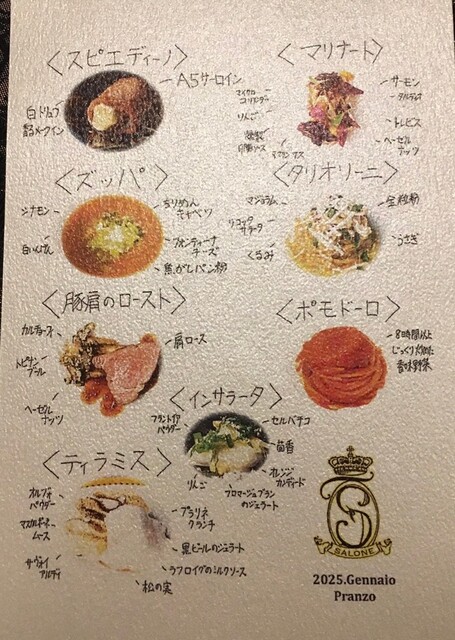 〈スピエディーノ〉
A5サーロイン
白トリュフ
香るメークイン
〈マリナート〉
マイクロ
コリアンダー
りんご
燻製
サーモン
タルディーボ
トレビス
ヘーゼル
ナッツ
〈ズッパ〉
シナモン
白いんげん
ちりめん
キャベツ
フォンティーナ
チーズ
焦がしパン粉
〈タリオリーニ〉
マジョラム
リコッタ
サラータ
くるみ
全粒粉
うさぎ
〈豚肩のロースト〉
カルチョーフィ
トピナン
ブール
ヘーゼル
ナッツ
肩ロース
〈ポモドーロ〉
8時間以上
じっくり炒めた
香味野菜
〈インサラータ〉
フランボワ
パウダー
りんご
セルバチコ
茴香
オレンジ
カンディート
フロマージュブラン
のジェラート
〈ティラミス〉
パウダー
マスカルポーネ
ムース
サヴォイ
アルディ
プラリネ
クランチ
黒ビールのジェラート
ラフロイグのミルクソース
松の実
S
SALONE
2025.Gennaio
Pranzo